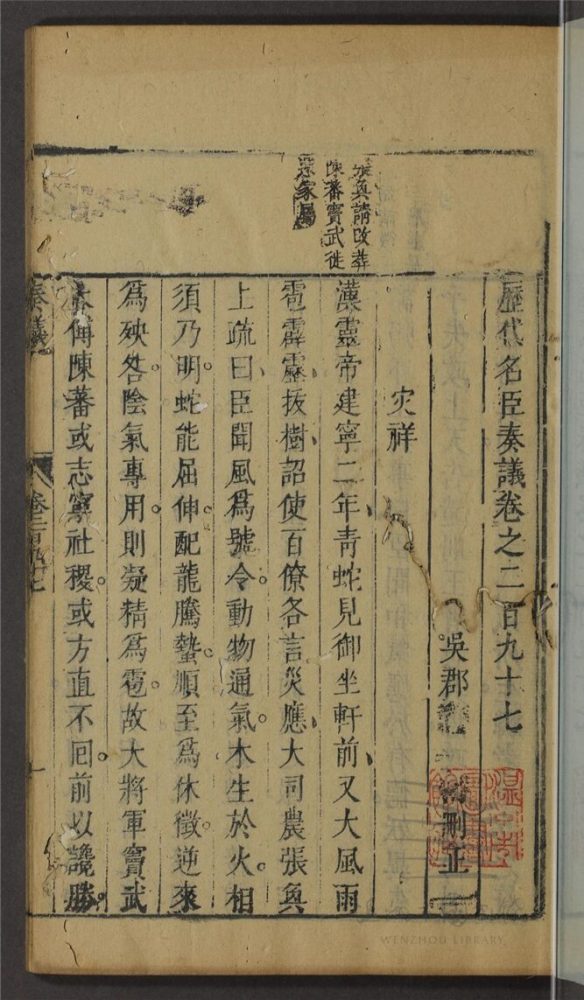 歷代名臣奏議卷之二百九十七
吳郡 刪正
灾祥
張奐請改葬
陳蕃竇武徙
還家屬
漢靈帝建寧二年青蛇見御坐軒前又大風雨
雹霹靂拔樹詔使百僚各言災應大司農張奐
上疏曰臣聞風爲號令動物通氣木生於火相
須乃明蛇能屈伸配龍騰蟄順至爲休徵逆來
爲殃咎陰氣專用則凝精爲雹故大將軍竇武
太傅陳蕃或志寧社稷或方直不囘前以讒勝
奏議
卷二百九十七
一
WENZHOU LIBRARY